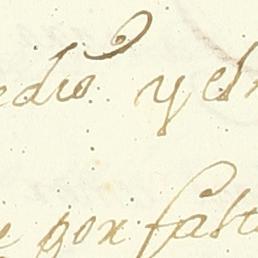 edio y el
e por falt